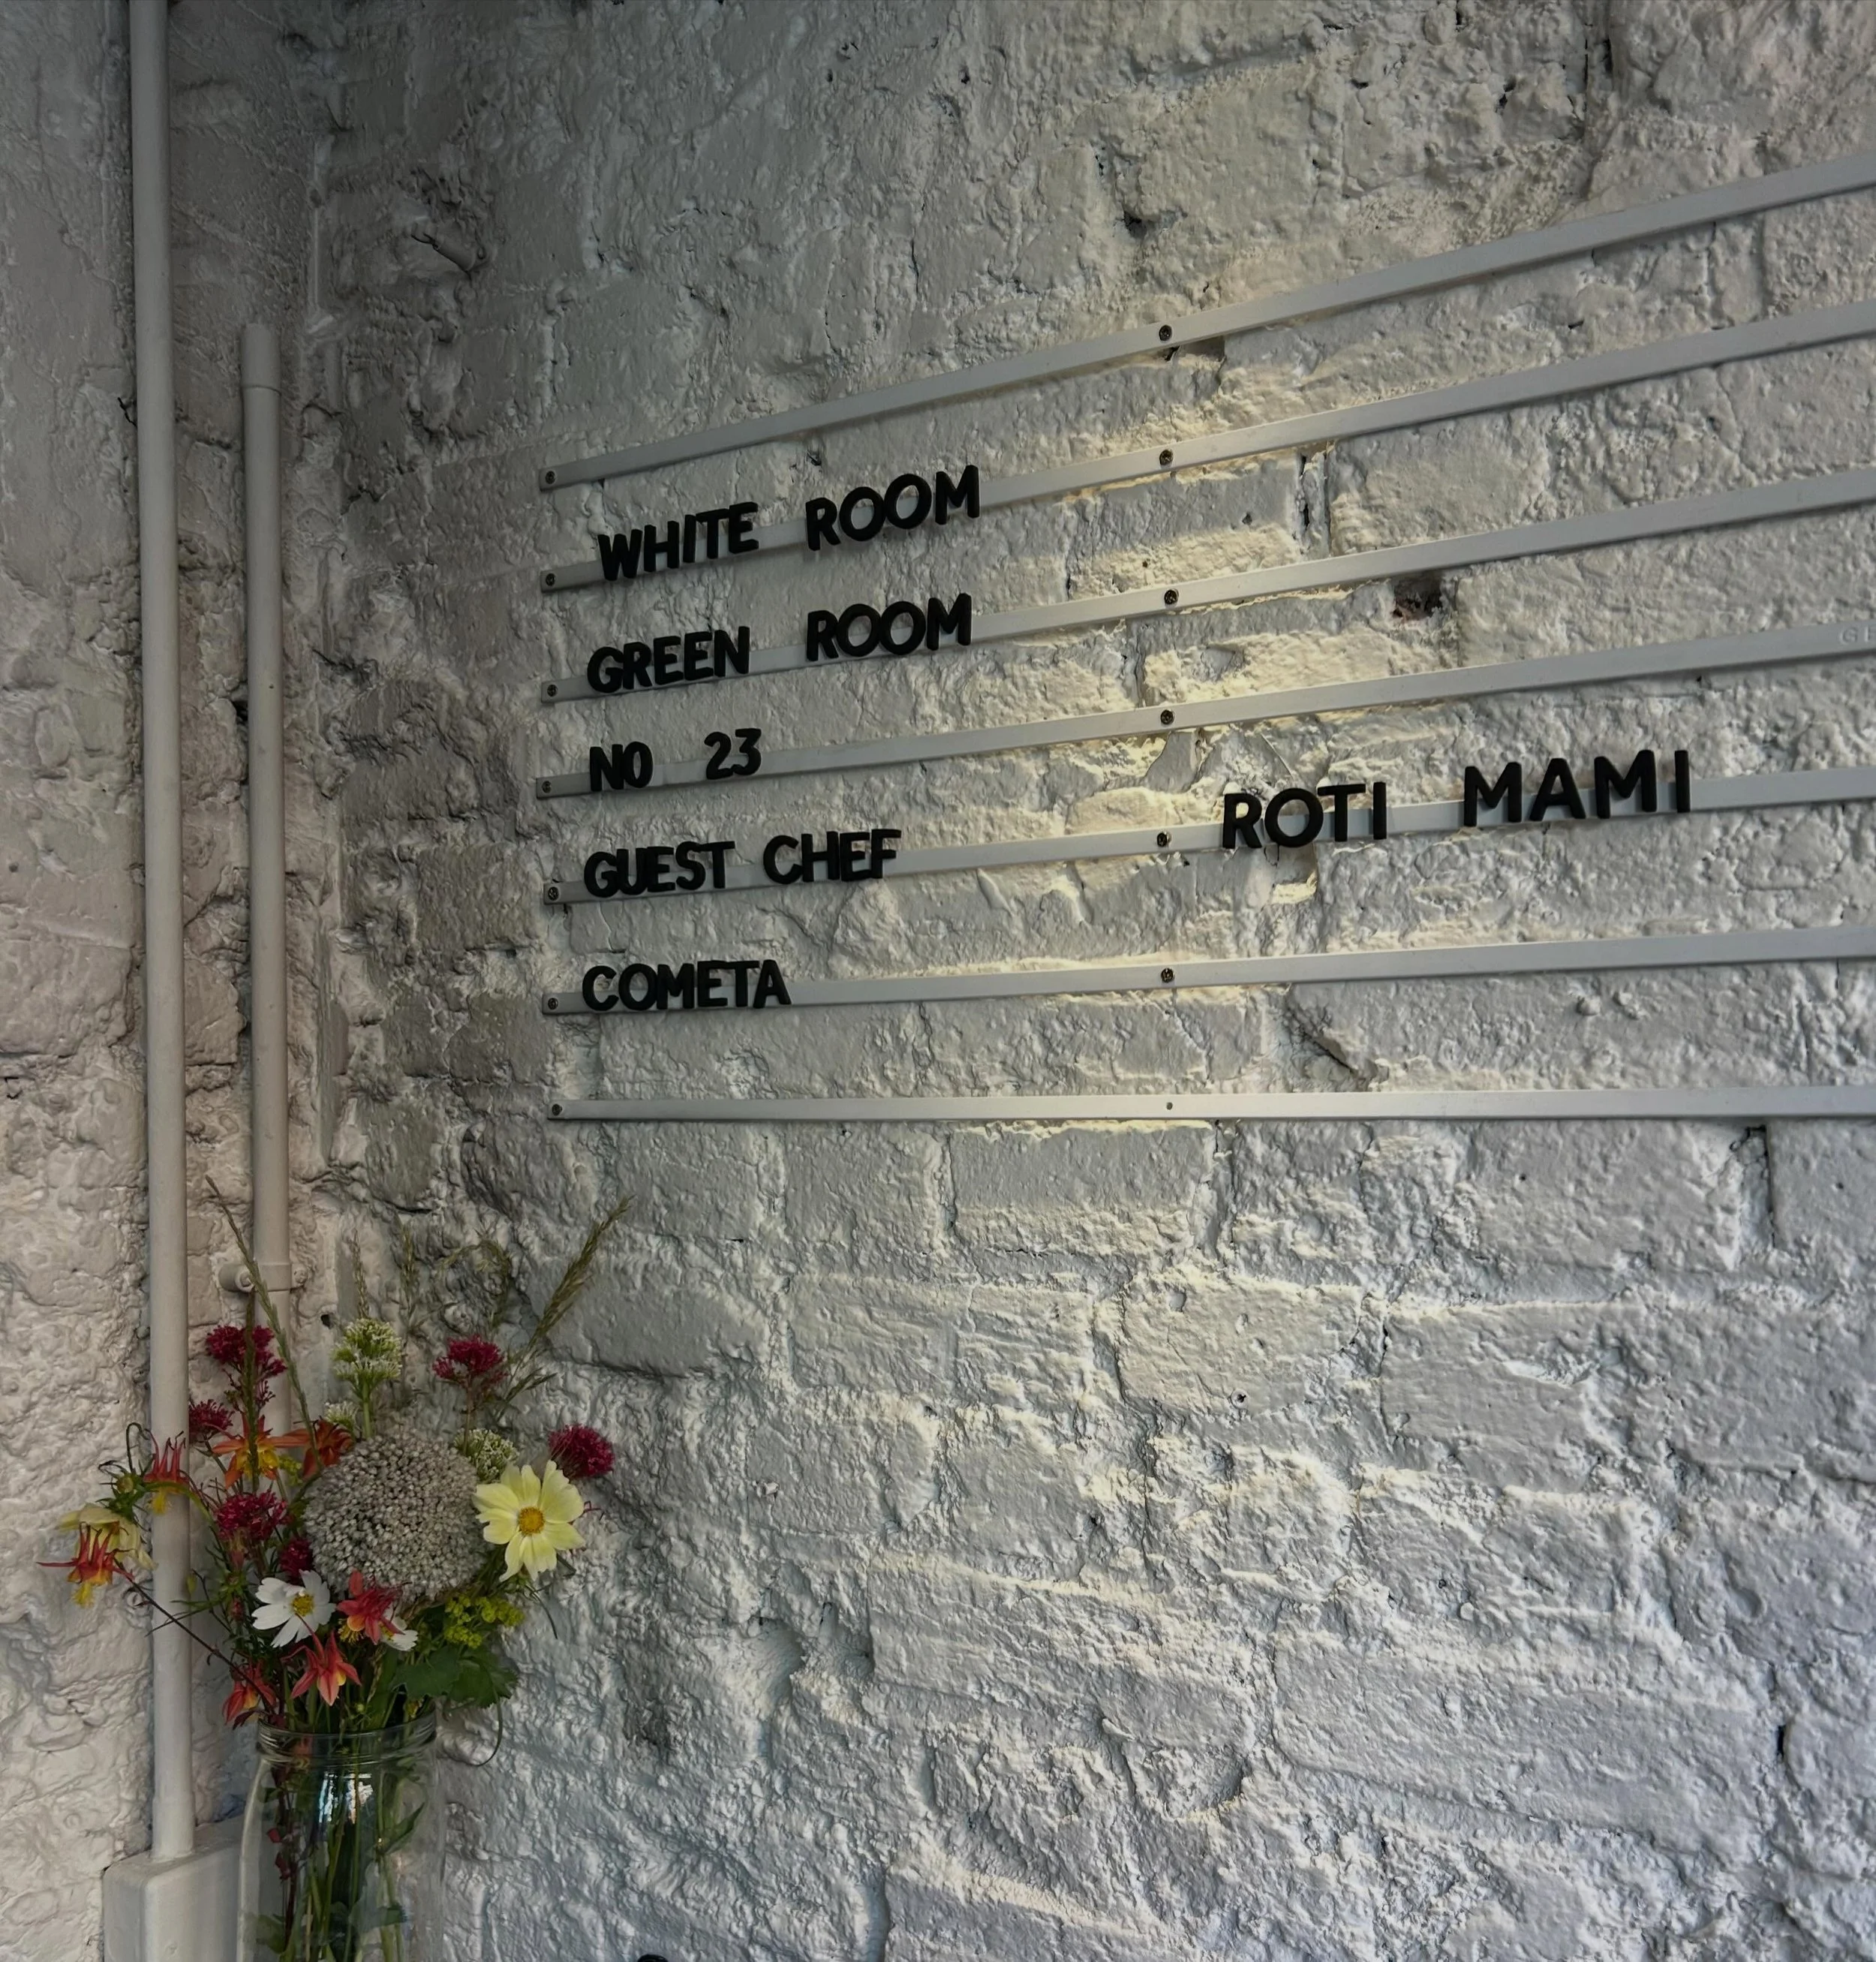 WHITE ROOM
GREEN ROOM
NO 23
GUEST CHEF ROTI MAMI
COMETA